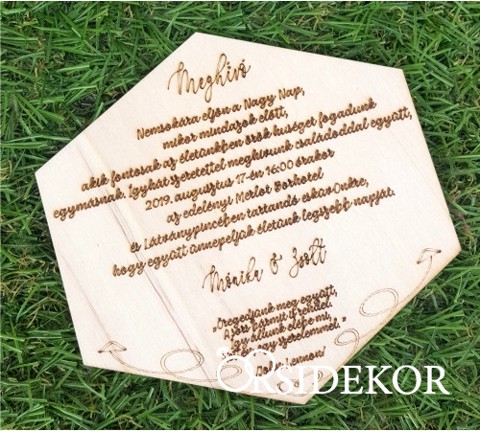 Meghívó
Nemsokára eljön a Nagy Nap,
mikor mindazok előtt,
akik fontosak az életünkben örök hűséget fogadunk
egymásnak. Így hát szeretettel meghívunk családoddal együtt,
2019. augusztus 17-én 16:00 órakor
az edelényi Merlot Borhotel
és Látványpincében tartandó esküvőnkre,
hogy együtt ünnepeljük életünk legszebb napját.
Mónika & Zsolt
„Öregedjünk meg együtt,
A sors bármit ír nekünk
együtt állunk elébe mi,
egy szerelemmel."
John Lennon
ORSIDEKOR